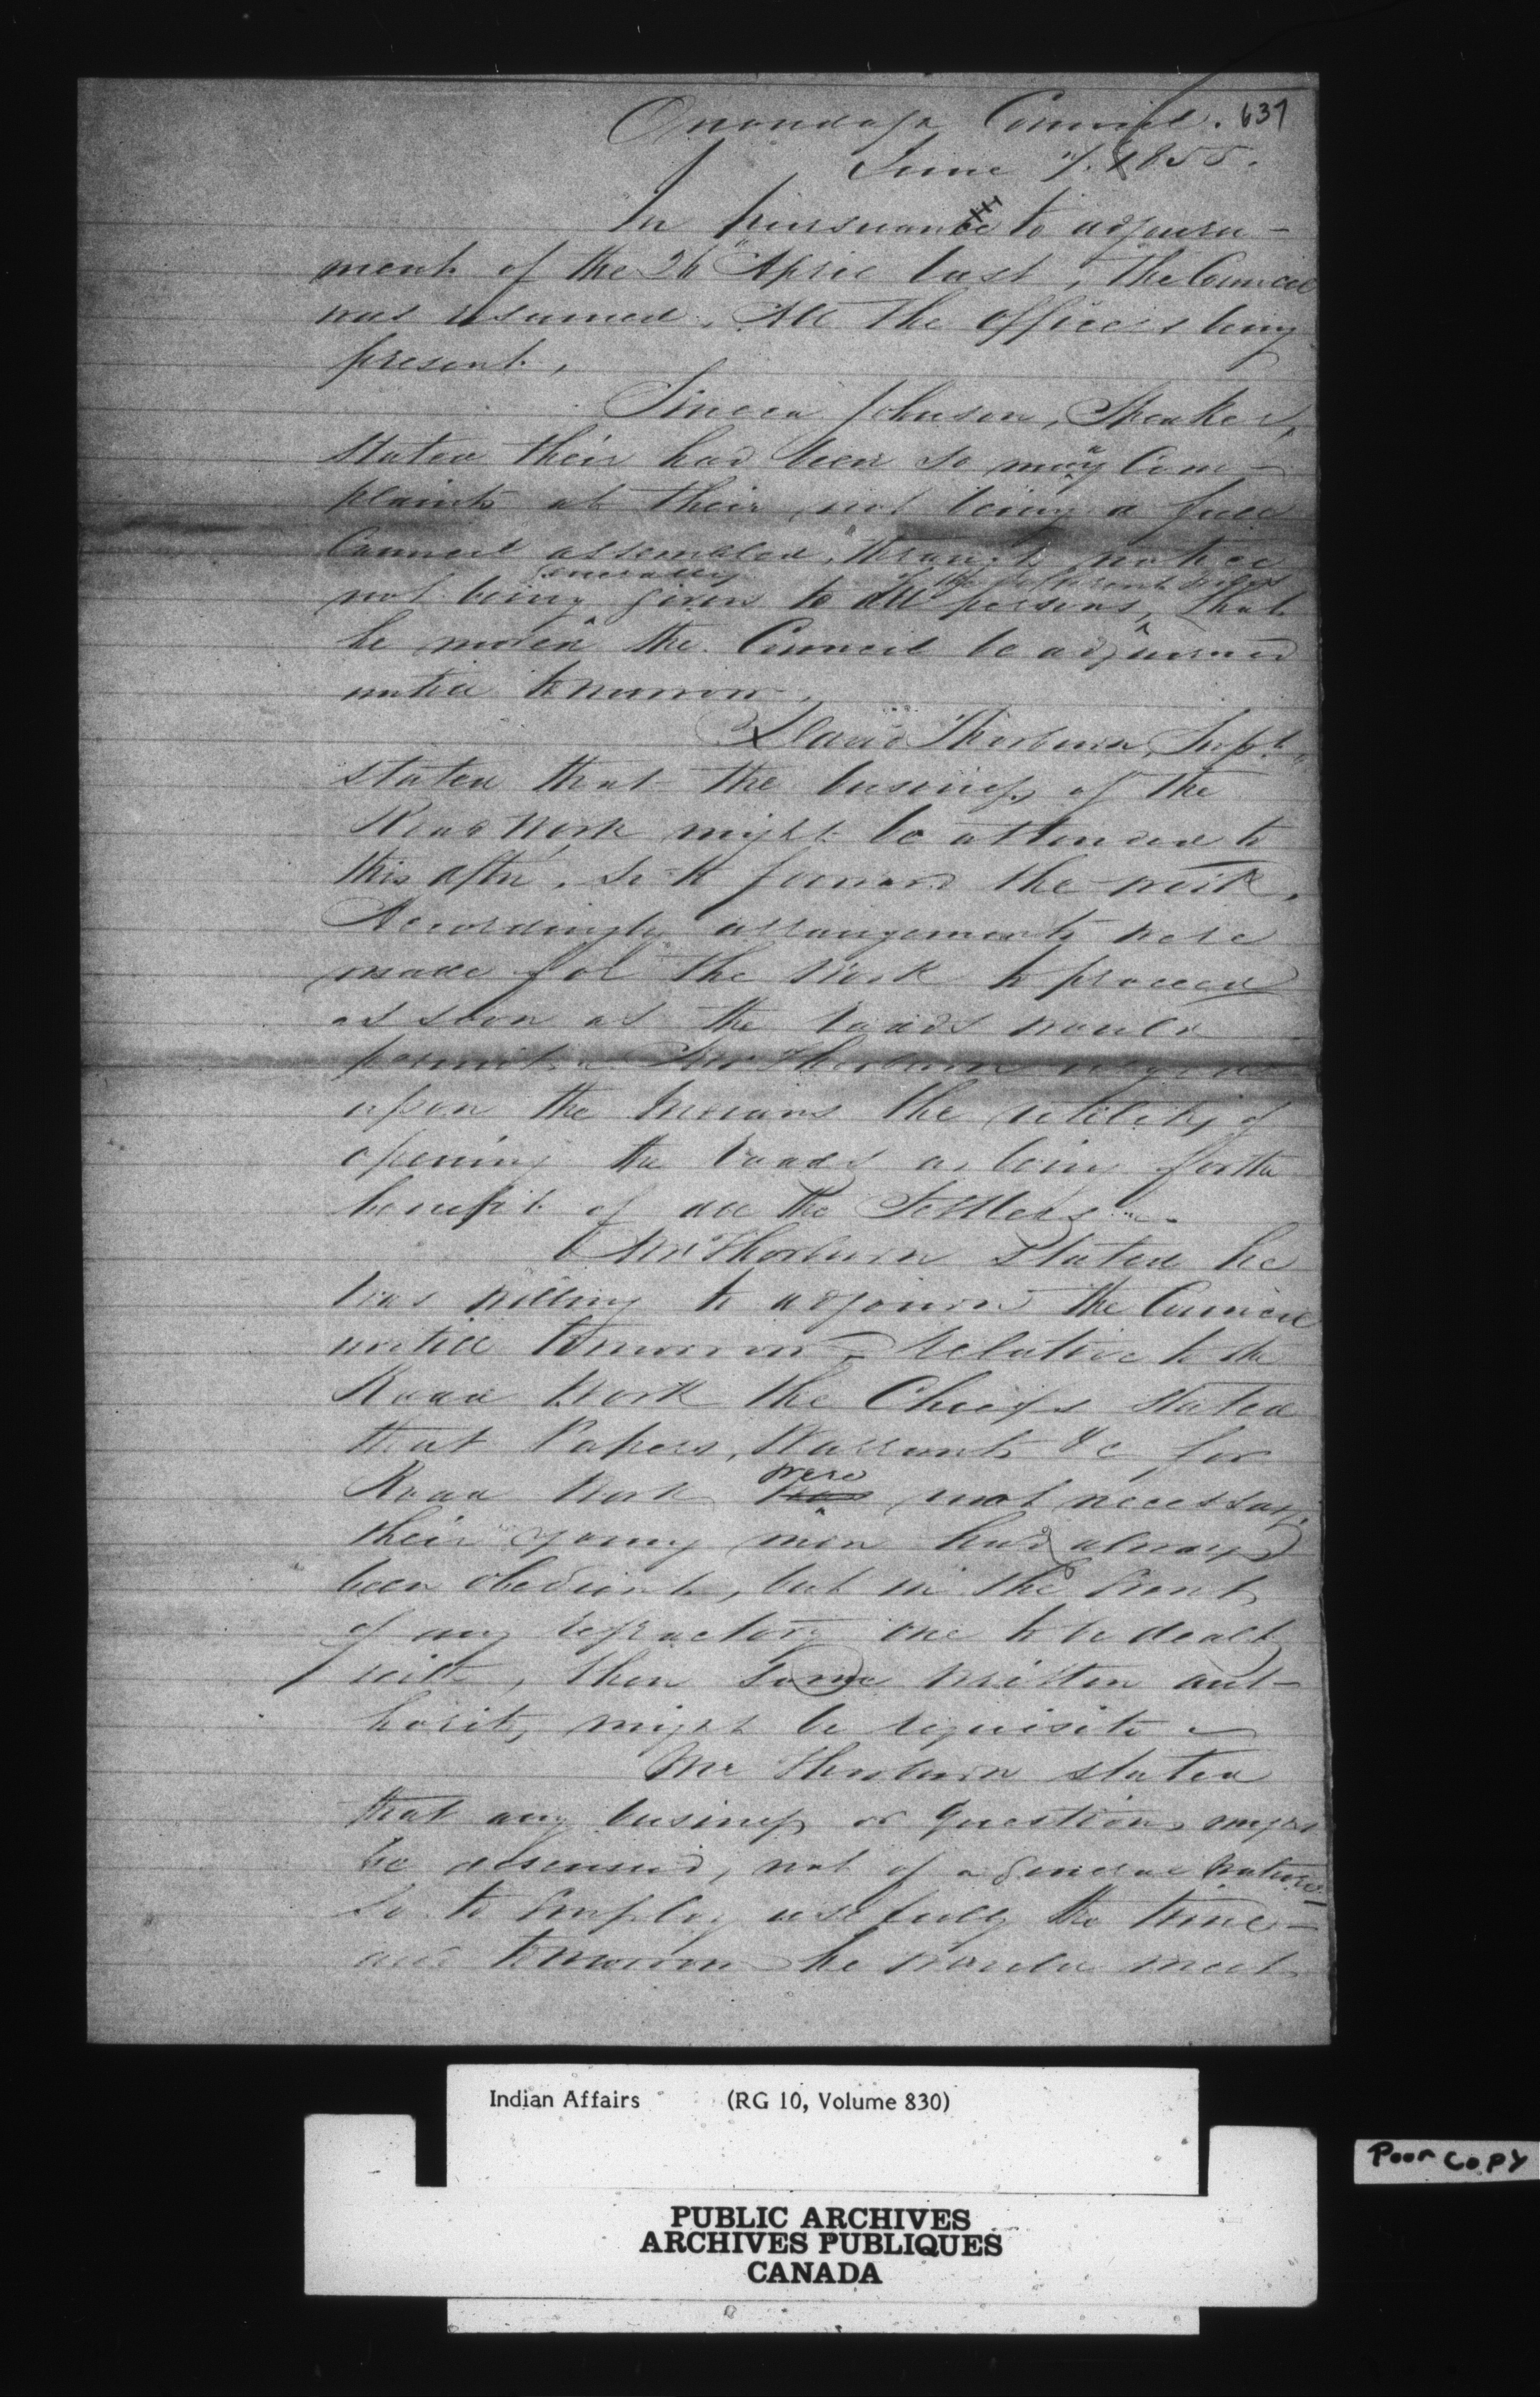 Onondaga Council. 637
June 7. 1855.
In pursuance to adjourn-
ment of the 26" April last, the Council
was resumed. All the officers being
present,
Seneca Johnson, Speaker,
stated their had been so many Com-
plaints at their not being a full
Council assembled, through notice
generally the different
not being given to all persons, that
he moved the Council be adjourned
untill tomorrow.
David Thorburn, Supt.
stated that the business of the
Road Work might be attended to
this aftn, so to forward the work.
Accordingly arrangements were
made for the work to proceed
as soon as the roads would
permit. Mr Thorburn urged
upon the Indians the utility of
opening the roads as being for the
benefit of all the Settlers.
Mr Thorburn stated he
was willing to adjourn the Council
untill tomorrow - relative to the
Road Work the Chiefs stated
that Papers, Warrants &c for
were
Road Work was not necessary,
their young men had always
been obedient, but in the event
of any refractory one to be dealt
with, then some written aut-
hority might be requisite -
Mr Thorburn stated
that any business or questions might
be discussed, not of a general nature
so to employ usefully the time -
and tomorrow he would meet
Indian Affairs (RG 10, Volume 830)
Poor Copy
PUBLIC ARCHIVES
ARCHIVES PUBLIQUES
CANADA